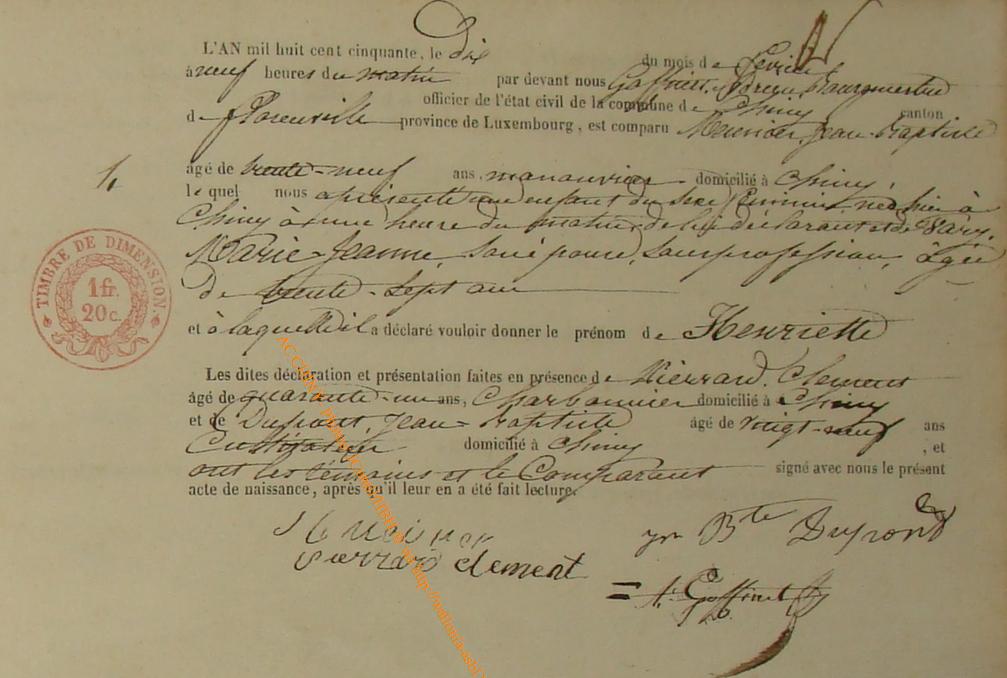 L'AN mil huit cent cinquante, le Dix du mois de fevrier
à neuf heures du matin par devant nous Goffinet, Bourgmestre
officier de l'état civil de la commune de Chiny canton
de florenville province de Luxembourg, est comparu Meunier, Jean-Baptiste
1.
âgé de trente-neuf ans, manouvrier domicilié à Chiny,
lequel nous a présenté un enfant du sexe féminin, né hier à
Chiny à une heure du matin, de lui déclarant et de
Marie-Jeanne, son épouse, sans profession, âgée
de trente-sept ans
et à laquelle il a déclaré vouloir donner le prénom de Henriette
TIMBRE DE DIMENSION.
1 fr.
20 c.
Les dites déclaration et présentation faites en présence de Pierrard, Clement
âgé de quarante-un ans, Charbonnier domicilié à Chiny
et de Dupont, Jean-Baptiste âgé de vingt-neuf ans
Cultivateur domicilié à Chiny, et
ont les témoins et le Comparant signé avec nous le présent
acte de naissance, après qu'il leur en a été fait lecture.
Meunier
pierrard clement
Bte Dupond
= A. Goffinet